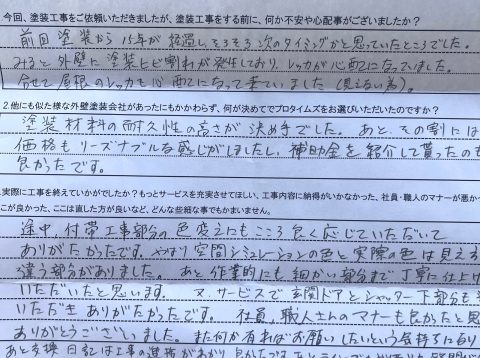 1.今回、塗装工事をご依頼いただきましたが、塗装工事をする前に、何か不安や心配事がございましたか？
前回塗装から15年が経過し、そろそろ次のタイミングかと思っていたところでした。
みると外壁に塗装ヒビ割れが発生しており、レッカが心配になっていました。
合せて屋根のレカも心配になって来ていました（見えない為）。
2.他にも似た様な外壁塗装会社があったにもかかわらず、何が決めてでプロタイムズをお選びいただいたのですか？
塗装材料の耐久性の高さが決め手でした。あと、その割には
価格もリーズナブルな感じがしましたし、補助金を紹介して貰ったのも
良かったです。
実際に工事を終えていかがでしたか？もっとサービスを充実させてほしい、工事内容に納得がいかなかった、社員・職人のマナーが悪か
こが良かった、ここは直した方が良いなど、どんな些細な事でもかまいません。
途中、付帯工事部分の色変えにもこころ良く応じていただいて
ありがたかったです。やはり空間シミュレーションの色と実際の色は見え方
違う部分がありました。あと作業的にも細かい部分まで丁寧に仕上げ
いただいたと思います。又、サービスで玄関ドアとシャッター下部分も
いただきありがたかったです。社員、職人さんのマナーも良かったと思
ありがとうございました。また何か有ればお願いしたいという気持ちにな
あと交換日記は工事の進捗がわかり良かったです